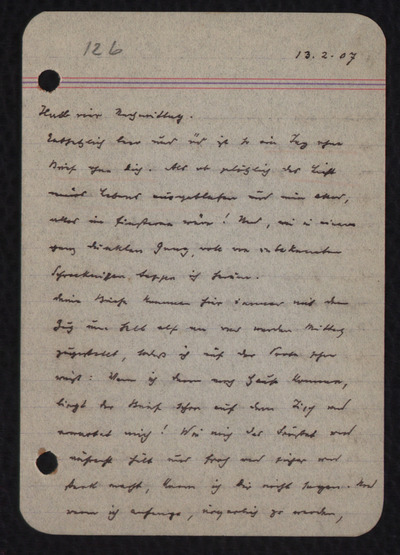 126
13.2.07
Halb vier Nachmittag.
Entsetzlich leer und öd ist so ein Tag ohne
Brief ohne Dich. Als ob plötzlich das Licht
meines Lebens ausgeblasen und nun alles,
alles im Finsteren wär! Und, wie in einem
ganz dunklen Gang, voll von unbekannten
Schrecknissen tappe ich herum.
Deine Briefe kommen hier immer mit dem
Zug um halb elf an und werden Mittag
zugestellt, sodaß ich auf der Probe schon
weiß: Wenn ich dann nach Hause komme,
liegt der Brief schon auf dem Tisch und
erwartet mich! Wie mich das tröstet und
aufrecht hält und froh und sicher und
stark macht, kann ich Dir nicht sagen. Und
wenn ich anfange, ärgerlich zu werden,